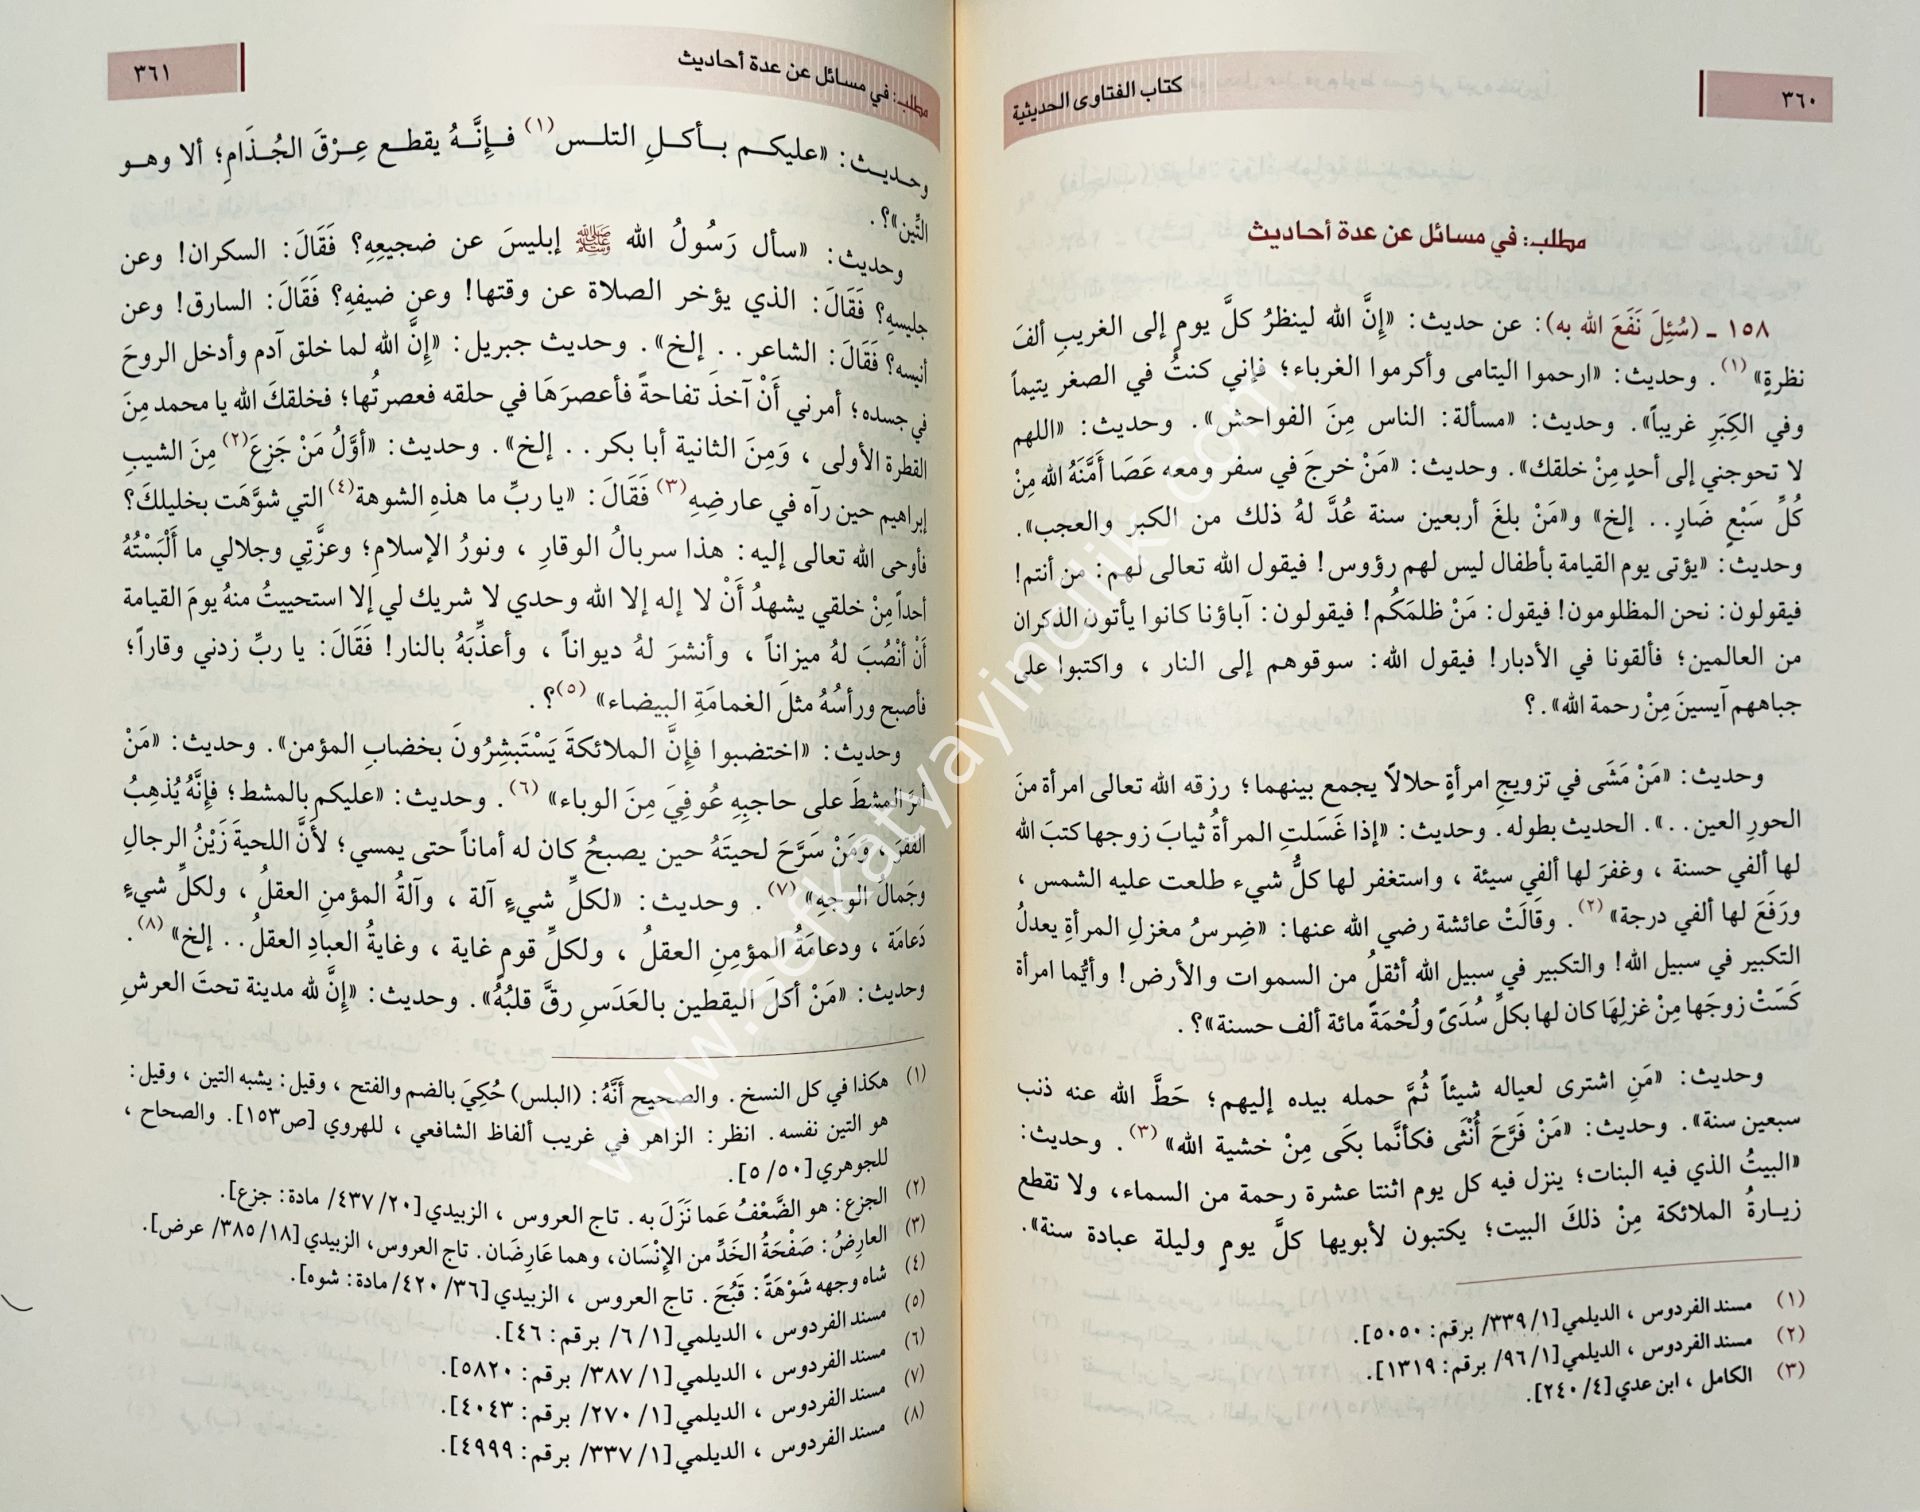 ٣٦٠
كتاب الفتاوى الحديثية
مطلب: في مسائل عن عدة أحاديث
١٥٨ ـ (سُئِلَ نَفَعَ الله به): عن حديث: «إنَّ الله لينظرُ كلَّ يوم إلى الغريبِ ألفَ
نظرةٍ» (١). وحديث: «ارحموا اليتامى وأكرموا الغرباء؛ فإني كنتُ في الصغر يتيماً
وفي الكِبَرِ غريباً». وحديث: «مسألة: الناس مِنَ الفواحش». وحديث: «اللهم
لا تحوجني إلى أحدٍ مِنْ خلقك». وحديث: «مَنْ خرجَ في سفر ومعه عَصَا أَمَّنَهُ الله مِنْ
كُلِّ سَبْعٍ ضَارٍ.. إلخ» و«مَنْ بلغَ أربعين سنة عُدَّ لهُ ذلك من الكبر والعجب».
وحديث: «يؤتى يوم القيامة بأطفال ليس لهم رؤوس! فيقول الله تعالى لهم: من أنتم!
فيقولون: نحن المظلومون! فيقول: مَنْ ظلمَكُم! فيقولون: آباؤنا كانوا يأتون الذكران
من العالمين؛ فألقونا في الأدبار! فيقول الله: سوقوهم إلى النار، واكتبوا على
جباههم آيسينَ مِنْ رحمة الله».؟
وحديث: «مَنْ مَشَى في تزويجِ امرأةٍ حلالاً يجمع بينهما؛ رزقه الله تعالى امرأة منَ
الحورِ العين..». الحديث بطوله. وحديث: «إذا غَسَلتِ المرأةُ ثيابَ زوجها كتبَ الله
لها ألفي حسنة، وغفرَ لها ألفي سيئة، واستغفر لها كلُّ شيء طلعت عليه الشمس،
ورَفَعَ لها ألفي درجة» (٢). وقَالَتْ عائشة رضي الله عنها: «ضِرسُ مغزلِ المرأةِ يعدلُ
التكبير في سبيل الله! والتكبير في سبيل الله أثقلُ من السموات والأرض! وأيُّما امرأة
كَسَتْ زوجَها مِنْ غزلِهَا كان لها بكلِّ سُدَىً ولُحْمَةً مائة ألف حسنة»؟.
وحديث: «مَنِ اشترى لعياله شيئاً ثُمَّ حمله بيده إليهم؛ حَطَّ الله عنه ذنب
سبعين سنة». وحديث: «مَنْ فَرَّحَ أُنْثَى فكأنَّما بكَى مِنْ خشية الله» (٣). وحديث:
«البيتُ الذي فيه البنات؛ ينزل فيه كل يوم اثنتا عشرة رحمة من السماء، ولا تقطع
زيارةُ الملائكة مِنْ ذلكَ البيت؛ يكتبون لأبويها كلَّ يومٍ وليلة عبادة سنة».
(١) مسند الفردوس، الديلمي [١/ ٣٣٩/ برقم: ٥٠٥٠].
(٢) مسند الفردوس، الديلمي [١/ ٩٦/ برقم: ١٣١٩].
(٣) الكامل، ابن عدي [٤/ ٢٤٠].
مطلب: في مسائل عن عدة أحاديث
٣٦١
وحديث: «عليكم بأكلِ التلس (١) فإِنَّهُ يقطع عِرْقَ الجُذَامِ؛ ألا وهو
التِّين»؟.
وحديث: «سأل رَسُولُ الله ﷺ إبليسَ عن ضجيعِهِ؟ فَقَالَ: السكران! وعن
جليسِهِ؟ فَقَالَ: الذي يؤخر الصلاة عن وقتها! وعن ضيفِهِ؟ فَقَالَ: السارق! وعن
أنيسه؟ فَقَالَ: الشاعر.. إلخ». وحديث جبريل: «إنَّ الله لما خلق آدم وأدخل الروحَ
في جسده؛ أمرني أَنْ آخذ تفاحةً فأعصرَهَا في حلقه فعصرتُها؛ فخلقكَ الله يا محمد مِنَ
القطرة الأولى، وَمِنَ الثانية أبا بكر.. إلخ». وحديث: «أوَّلُ مَنْ جَزِعَ (٢) مِنَ الشيبِ
إبراهيم حين رآه في عارضِهِ (٣) فَقَالَ: «يا ربِّ ما هذهِ الشوهة (٤) التي شوَّهَت بخليلكَ؟
فأوحى الله تعالى إليه: هذا سربالُ الوقارِ، ونورُ الإسلامِ؛ وعزَّتِي وجلالي ما أَلْبَسْتُهُ
أحداً مِنْ خلقي يشهدُ أَنْ لا إله إلا الله وحدي لا شريك لي إلا استحييتُ منهُ يومَ القيامة
أَنْ أَنْصُبَ لهُ ميزاناً، وأنشرَ لهُ ديواناً، وأعذِّبَهُ بالنار! فَقَالَ: يا ربِّ زدني وقاراً؛
فأصبح ورأسُهُ مثلَ الغمامَةِ البيضاء» (٥)؟.
وحديث: «اختضبوا فإِنَّ الملائكةَ يَسْتَبشِرُونَ بخضابِ المؤمن». وحديث: «مَنْ
أمرَّ المشطَ على حاجبِهِ عُوفِيَ مِنَ الوباء» (٦). وحديث: «عليكم بالمشط؛ فإنَّهُ يُذهِبُ
الفقرَ، ومَنْ سَرَّحَ لحيتَهُ حين يصبحُ كان له أماناً حتى يمسي؛ لأَنَّ اللحيةَ زَيْنُ الرجالِ
وجَمالَ الوجهِ» (٧). وحديث: «لكلِّ شيءٍ آلة، وآلةُ المؤمنِ العقلُ، ولكلِّ شيءٍ
دَعامَة، ودعامَةُ المؤمِنِ العقلُ، ولكلِّ قومٍ غاية، وغايةُ العبادِ العقلُ.. إلخ» (٨).
وحديث: «مَنْ أكلَ اليقطين بالعَدَسِ رقَّ قلبُهُ». وحديث: «إنَّ لله مدينة تحتَ العرشِ
(١) هكذا في كل النسخ. والصحيح أَنَّهُ: (البلس) حُكِيَ بالضم والفتح، وقيل: يشبه التين، وقيل:
هو التين نفسه. انظر: الزاهر في غريب ألفاظ الشافعي، للهروي [ص١٥٣]. والصحاح،
للجوهري [٥٠/ ٥].
(٢) الجزع: هو الضَّعْفُ عَما نَزَلَ به. تاج العروس، الزبيدي [٢٠/ ٤٣٧/ مادة: جزع].
(٣) العارِضُ: صَفْحَةُ الخَدِّ من الإنْسَان، وهما عَارِضَان. تاج العروس، الزبيدي [١٨/ ٣٨٥/ عرض].
(٤) شاه وجهه شَوْهَةً: قَبُحَ. تاج العروس، الزبيدي [٣٦/ ٤٢٠/ مادة: شوه].
(٥) مسند الفردوس، الديلمي [١/ ٦/ برقم: ٤٦].
(٦) مسند الفردوس، الديلمي [١/ ٣٨٧/ برقم: ٥٨٢٠].
(٧) مسند الفردوس، الديلمي [١/ ٢٧٠/ برقم: ٤٠٤٣].
(٨) مسند الفردوس، الديلمي [١/ ٣٣٧/ برقم: ٤٩٩٩].
www.sefkatyayincilik.com